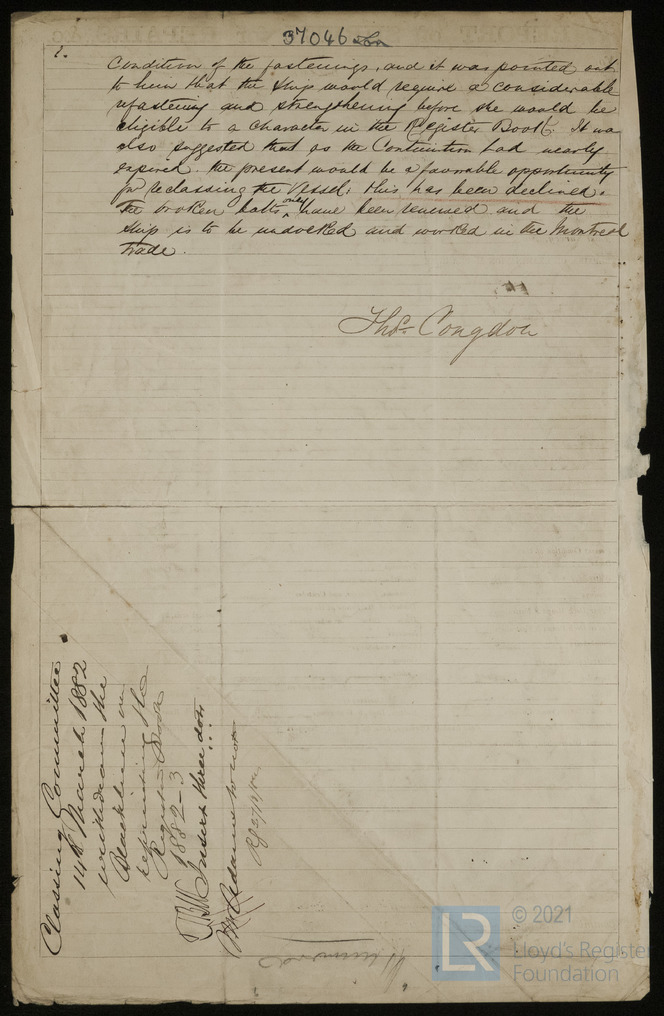 2.
37046 Lon
Condition of the fastenings, and it was pointed out
to him that the ship would require a considerable
refastening and strengthening before she would be
eligible to a character in the Register Book. It was
also suggested that as the Continuation had nearly
expired the present would be a favorable opportunity
for reclassing the Vessel; this has been declined.
The broken bolts only have been renewed and the
ship is to be undocked and worked in the Montreal
trade.
Thos. Congdon
Classing Committee
14th March 1882
withdraw the
Black line on
reprinting the
Register Book
1882-3
Insert three dots
...
© 2021
Lloyd's Register
Foundation
LR